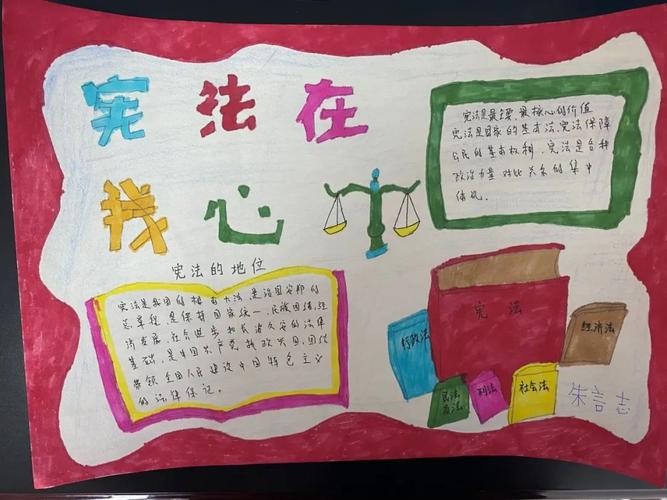 宪法在
我心
宪法是最重要、最核心的价值
宪法是国家的基本法,宪法保障
公民的基本权利,宪法是各种
政治力量对比关系的集中
体现。
宪法的地位
宪法是我国的根本大法,是治国安邦的
总章程,是保持国家统一、民族团结,经
济发展,社会进步和长治久安的法律
基础,是中国共产党执政兴国,团结
带领全国人民建设中国特色主义
的法律保证。
宪法
行政法
经济法
民法
商法
刑法
社会法
朱言志